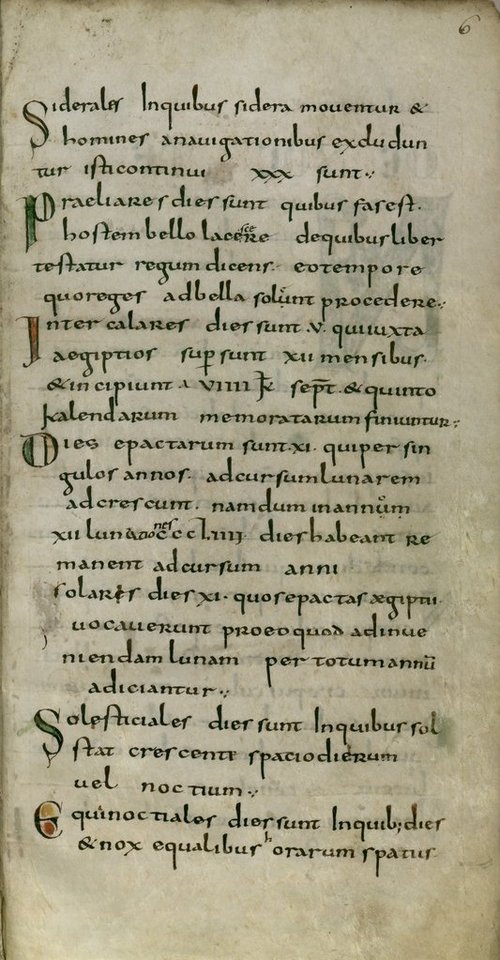 6
Siderales Inquibus sidera mouentur &
homines anauigationibus excludun
tur isticontinui xxx sunt.
Praeliares dies sunt quibus fas est.
hostem bello lacere dequibus liber
testatur regum dicens. eo tempore
quo reges ad bella solunt procedere.
Intercalares dies sunt .v. qui iuxta
aegiptios sup sunt xii mensibus.
& incipiunt a viiii kl sept. & quinto
kalendarum memoratarum finiuntur.
Dies epactarum sunt .xi. qui per sin
gulos annos. ad cursum lunarem
adcrescunt. nam dum in annum
xii lunationes cccLiiii dies habeant re
manent ad cursum anni
solares dies xi. quos epactas ægiptii
uocauerunt pro eo quod ad inue
niendam lunam per totum annū
adiciantur.
Solesticiales dies sunt Inquibus sol
stat crescente spacio dierum
uel noctium.
Equinoctiales dies sunt Inquib; dies
& nox equalibus horarum spatiis